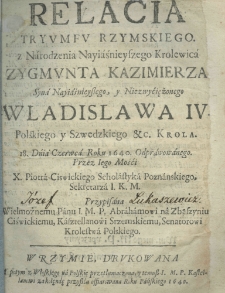 RELACIA
TRYVMFV RZYMSKIEGO.
z Národzenia Nayiáśnieyszego Krolewicá
ZYGMVNTA KAZIMIERZA
Syná Nayiáśnieyszego, y Niezwyćiężonego
WLADISLAWA IV.
Polskiego y Szwedzkiego &c. KROLA.
18. Dniá Czerwcá Roku 1640. Odpráwowánego.
Przez Iego Mośći
X. Piotrá Ciwickiego Scholástyká Poznánskiego,
Sekretarzá I. K. M.
Przypisána
Józef Łukaszewicz
Wielmożnemu Pánu I. M. P. Abráhámowi ná Zbąszyniu
Ciświckiemu, Kásztellanowi Szremskiemu, Senatorowi
Krolestwá Polskiego.
W RZYMIE, DRVKOWANA